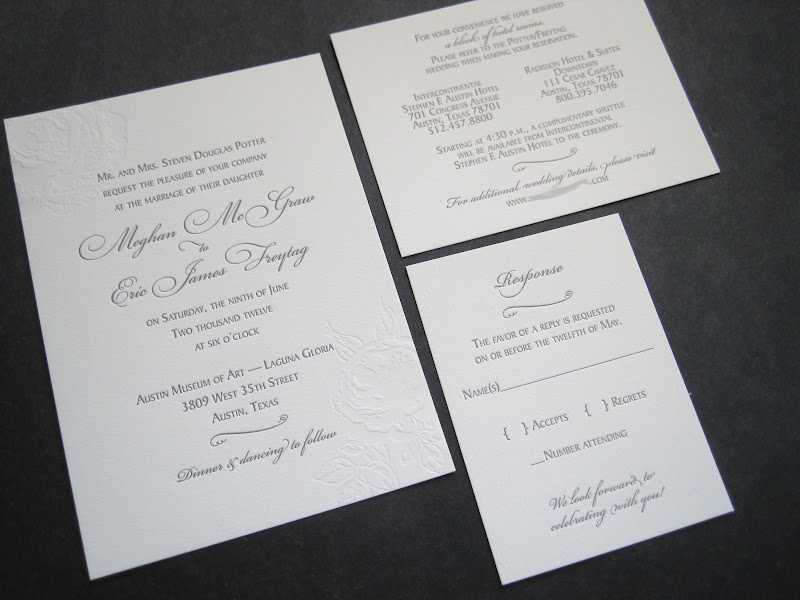 Mr. and Mrs. Steven Douglas Potter
request the pleasure of your company
at the marriage of their daughter
Meghan McGraw
to
Eric James Freytag
on Saturday, the ninth of June
Two thousand twelve
at six o'clock
Austin Museum of Art — Laguna Gloria
3809 West 35th Street
Austin, Texas
Dinner & dancing to follow
For your convenience we have reserved
a block of hotel rooms.
Please refer to the Potter/Freytag
wedding when making your reservation.
Intercontinental
Stephen F. Austin Hotel
701 Congress Avenue
Austin, Texas 78701
512.457.8800
Radisson Hotel & Suites
Downtown
111 Cesar Chavez
Austin, Texas 78701
800.395.7046
Starting at 4:30 p.m., a complimentary shuttle
will be available from Intercontinental
Stephen F. Austin Hotel to the ceremony.
For additional wedding details, please visit
www. .com
Response
The favor of a reply is requested
on or before the twelfth of May.
Name(s)
{ } Accepts { } Regrets
__Number attending
We look forward to
celebrating with you!